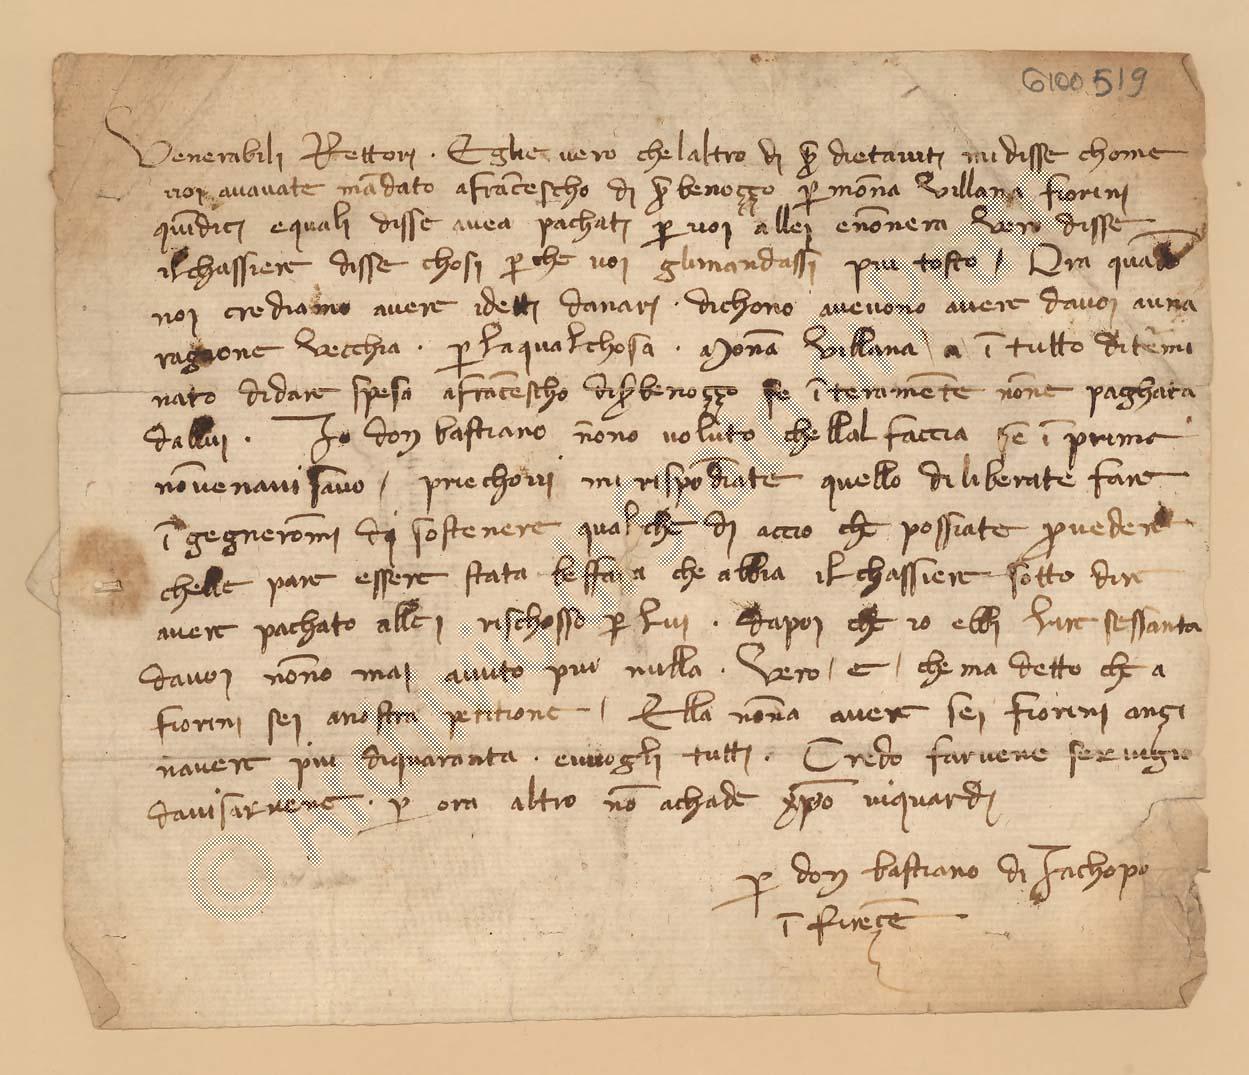 6100519
Venerabili Rettori . Egli e vero chellaltro di p̄ dietaiuti mi disse chome
voi avavate mādato afrācescho di ṣ benozzo p monna villana fiorini
quīdici equali disse avea pachati p voi allei enōnera vero disse
ilchassiere disse chosi p che voi glimandassi piu tosto / Ora quādo
noi crediamo avere idetti danari . dichono avevono avere davoi auna
ragione vecchia . p laqualchosa . monā villana a ī tutto ditermi
nato didare spesa afrācescho diṣ benozzo se īteramēte nōne paghata
dallui . Io don bastiano nōno voluto chellal faccia se ī prima
nōvenavisavo / priechovi mi rispōdiate quello diliberate fare
īgegnerōmi di sostenere qualche di accio che possiate provedere
chelle pare essere stata beffata che abbia ilchassiere sotto dire
avere pachato allei rischosso p lui . dapoi che io ebbi lire sessanta
davoi nōno mai avuto piu nulla . Vero / e / che ma detto che a
fiorini sei anostra petitione / Ella nonna avere sei fiorini anzi
navere piu diquaranta . evuogli tutti . Credo farvene servigio
davisarvene . p ora altro nō achade xpo viguardi
p don bastiano di Iachopo
ī firēçe